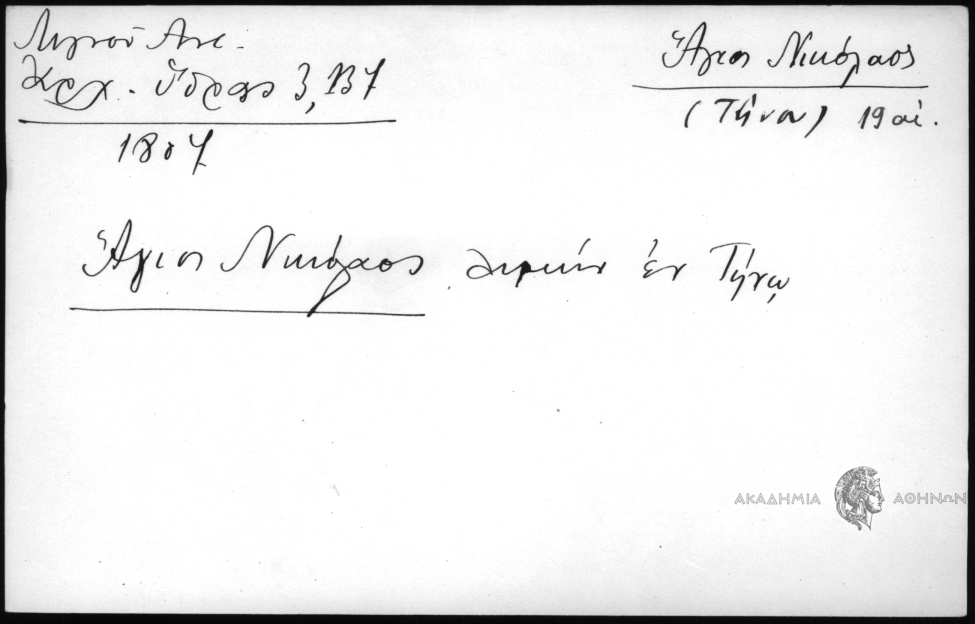 Λιγνοῦ Αντ.
Ἀρχ. Ὕδρας 3, 137
1807
Ἅγιος Νικόλαος
(Τήνου) 19 αἰ.
Ἅγιος Νικόλαος λιμήν ἐν Τήνῳ
ΑΚΑΔΗΜΙΑ ΑΘΗΝΩΝ